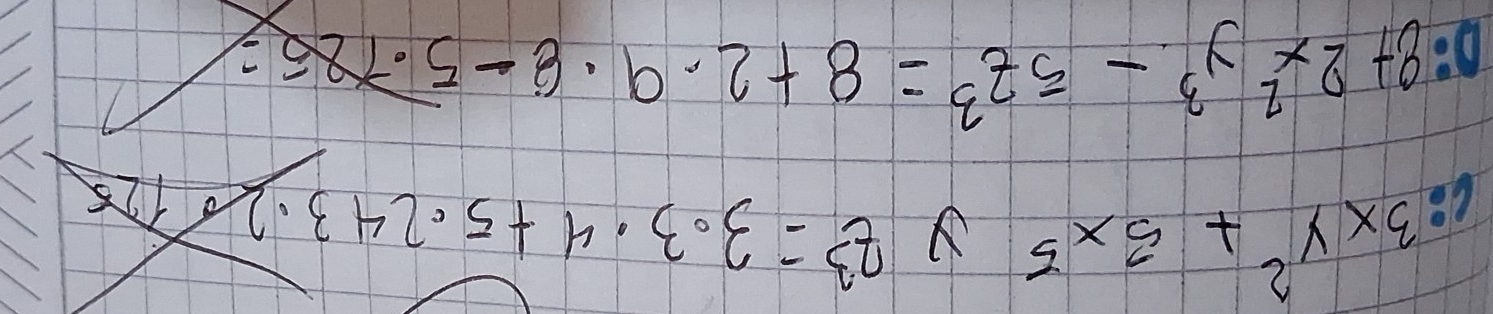 C: 3xy² + 5x⁵ y z³ = 3·3·4+5·243·2·125
D: 8+2x² y³ - 5z³ = 8+2·9·8-5·125=